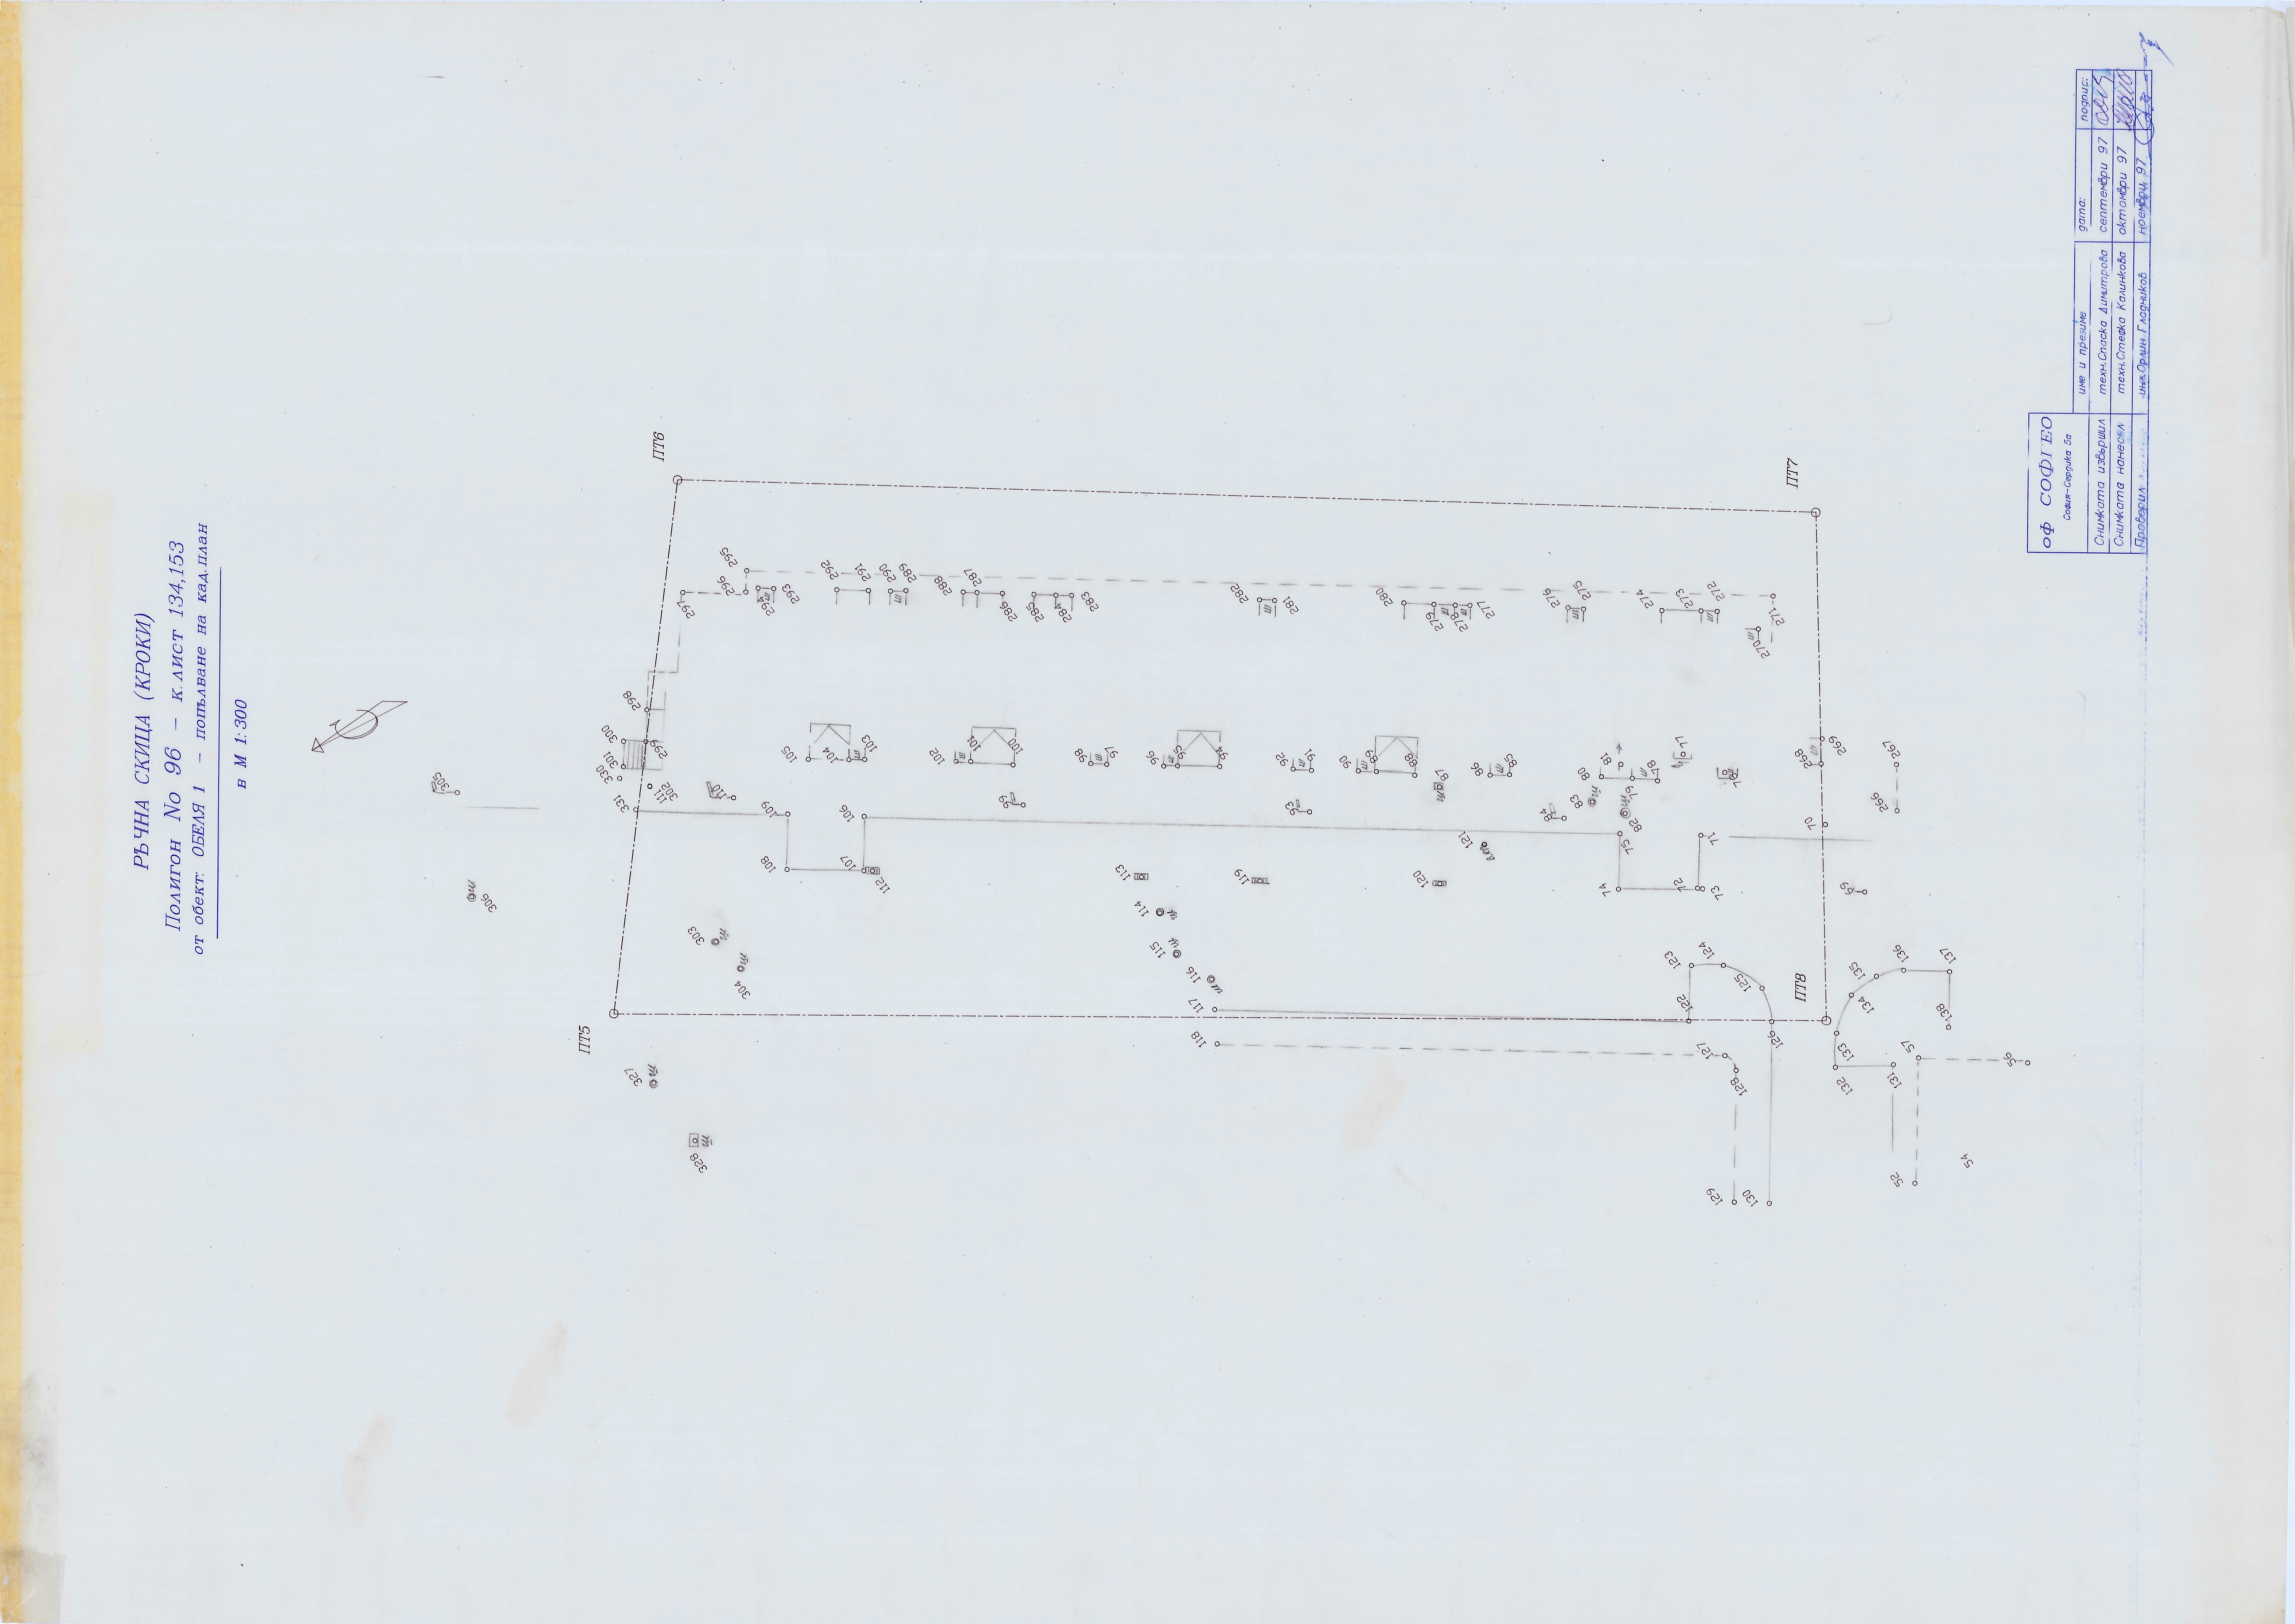 РЪЧНА СКИЦА (КРОКИ)
Полигон No 96 - к.лист 134,153
от обект: ОБЕЛЯ 1 - попълване на кад.план
в М 1:300
ПТ6
ПТ7
ПТ5
ПТ8
295
296
297
294
293
292
291
290
289
288
287
286
285
284
283
282
281
280
279
278
277
276
275
274
273
272
271
270
298
299
300
301
330
331
302
111
110
109
108
107
106
112
105
104
103
102
101
100
99
98
97
96
95
94
93
92
91
90
89
88
87
86
85
84
83
82
81
80
79
78
77
76
75
74
73
72
71
70
69
268
269
267
266
305
306
303
304
113
114
115
116
117
118
119
120
121
122
123
124
125
126
127
128
129
130
131
132
133
134
135
136
137
138
57
56
52
54
327
328
оф СОФГЕО
София-Сердика 5а
име и презиме дата: подпис:
Снимката извършил техн.Спаска Димитрова септември 97
Снимката нанесъл техн.Стефка Калинкова октомври 97
Проверил инж.Орлин Гладников ноември 97